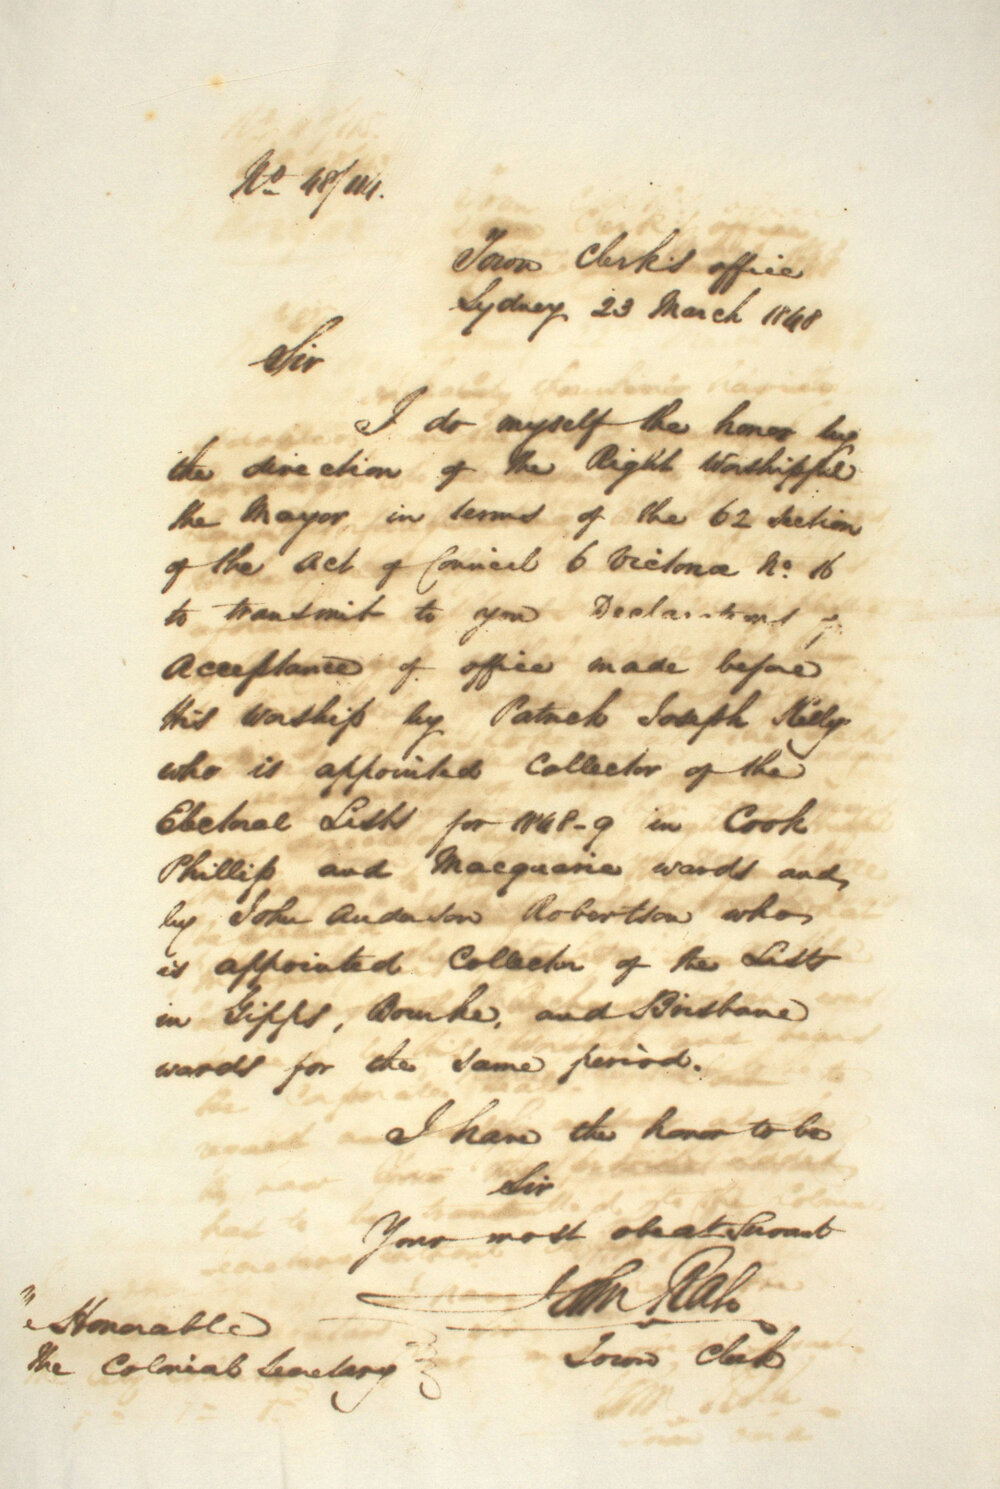 No 48/114.
Town Clerk's office
Sydney 23 March 1848
Sir
I do myself the honor by
the direction of the Right Worshipful
the Mayor, in terms of the 62 Section
of the Act of Council 6 Victoria No. 16
to transmit to you Declarations of
Acceptance of office made before
His Worship by Patrick Joseph Kelly
who is appointed Collector of the
Electoral Lists for 1848-9 in Cook
Phillip and Macquarie wards and,
by John Anderson Robertson who,
is appointed Collector of the Lists
in Gipps, Bourke, and Brisbane
wards for the same period.
I have the honor to be
Sir
Your most obedt Servant
John Rae
Town Clerk
Honorable
The Colonial Secretary